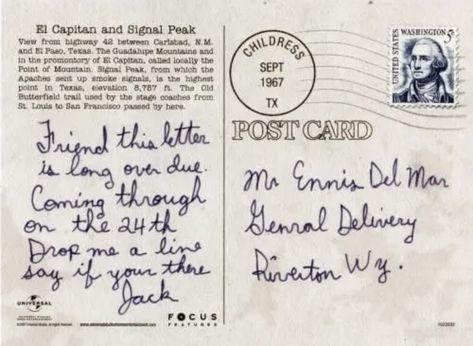 El Capitan and Signal Peak
View from highway 42 between Carlsbad, N.M.
and El Paso, Texas. The Guadalupe Mountains and
in the promontory of El Capitan, called locally the
Point of Mountain. Signal Peak, from which the
Apaches sent up smoke signals, is the highest
point in Texas, elevation 8,757 ft. The Old
Butterfield trail used by the stage coaches from
St. Louis to San Francisco passed by here.
Friend this letter
is long over due.
Coming through
on the 24th
Drop me a line
say if your there
Jack
UNIVERSAL
FOCUS
FEATURES
CHILDRESS
SEPT
1967
TX
UNITED STATES
WASHINGTON
5¢
POST CARD
Mr Ennis Del Mar
Genral Delivery
Riverton Wy.